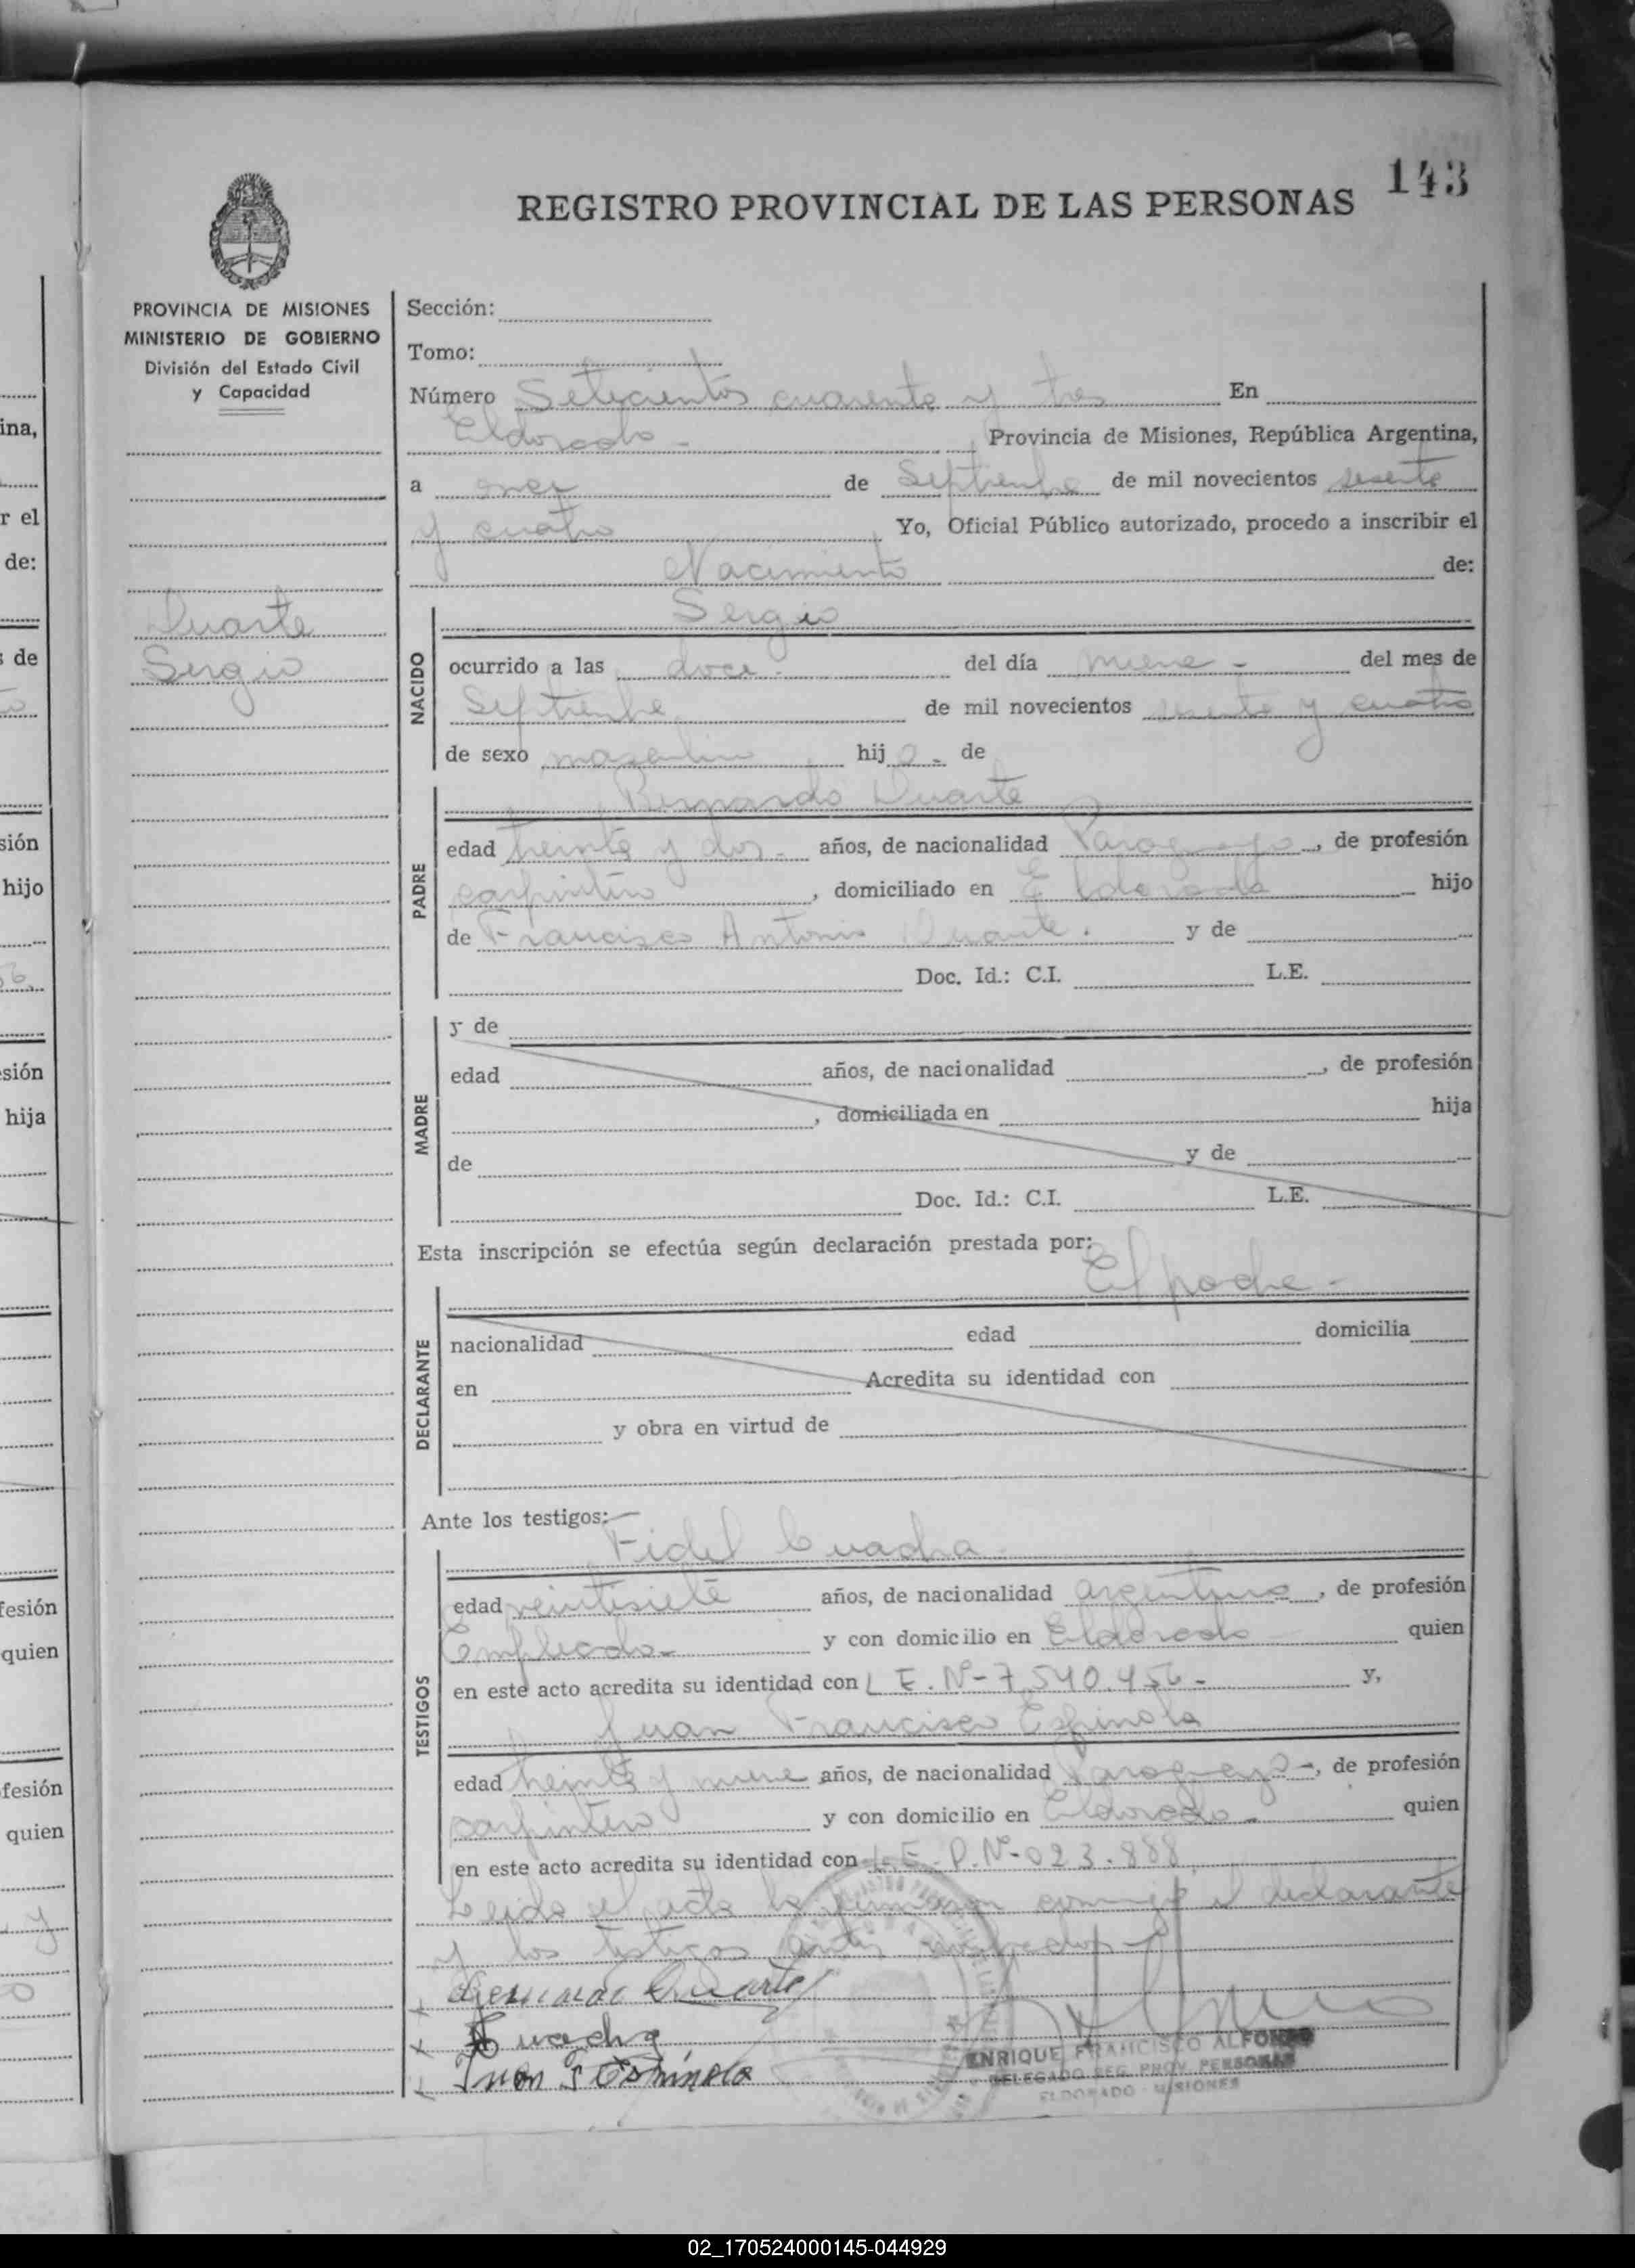 143
REGISTRO PROVINCIAL DE LAS PERSONAS
PROVINCIA DE MISIONES
MINISTERIO DE GOBIERNO
División del Estado Civil
y Capacidad
Duarte
Sergio
Sección:
Tomo:
Número Setecientos cuarenta y tres En
Eldorado - Provincia de Misiones, República Argentina,
a once de Septiembre de mil novecientos sesenta
y cuatro Yo, Oficial Público autorizado, procedo a inscribir el
Nacimiento de:
Sergio
NACIDO
ocurrido a las doce - del día nueve - del mes de
Septiembre de mil novecientos sesenta y cuatro
de sexo masculino hijo - de
PADRE
Bernardo Duarte
edad treinta y dos - años, de nacionalidad Paraguayo, de profesión
carpintero, domiciliado en Eldorado hijo
de Francisco Antonio Duarte. y de
Doc. Id.: C.I. L.E.
MADRE
y de
edad años, de nacionalidad , de profesión
, domiciliada en hija
de y de
Doc. Id.: C.I. L.E.
Esta inscripción se efectúa según declaración prestada por:
El padre -
DECLARANTE
nacionalidad edad domicilia
en Acredita su identidad con
y obra en virtud de
Ante los testigos:
TESTIGOS
Fidel Cuadra
edad veintisiete años, de nacionalidad argentino, de profesión
Empleado - y con domicilio en Eldorado quien
en este acto acredita su identidad con L E. Nº - 7.540.456 - y,
Juan Francisco Espinola
edad treinta y nueve años, de nacionalidad Paraguayo -, de profesión
carpintero y con domicilio en Eldorado - quien
en este acto acredita su identidad con L.E. P. Nº - 023.888
Leída el acta la firman conmigo el declarante
y los testigos antes
Bernardo Duarte
Cuadra
Juan F Espinola
ENRIQUE FRANCISCO ALFONSO
DELEGADO REG. PROV. PERSONAS
ELDORADO - MISIONES
ina,
r el
de:
s de
sión
hijo
sión
hija
fesión
quien
fesión
quien
y
02_170524000145-044929